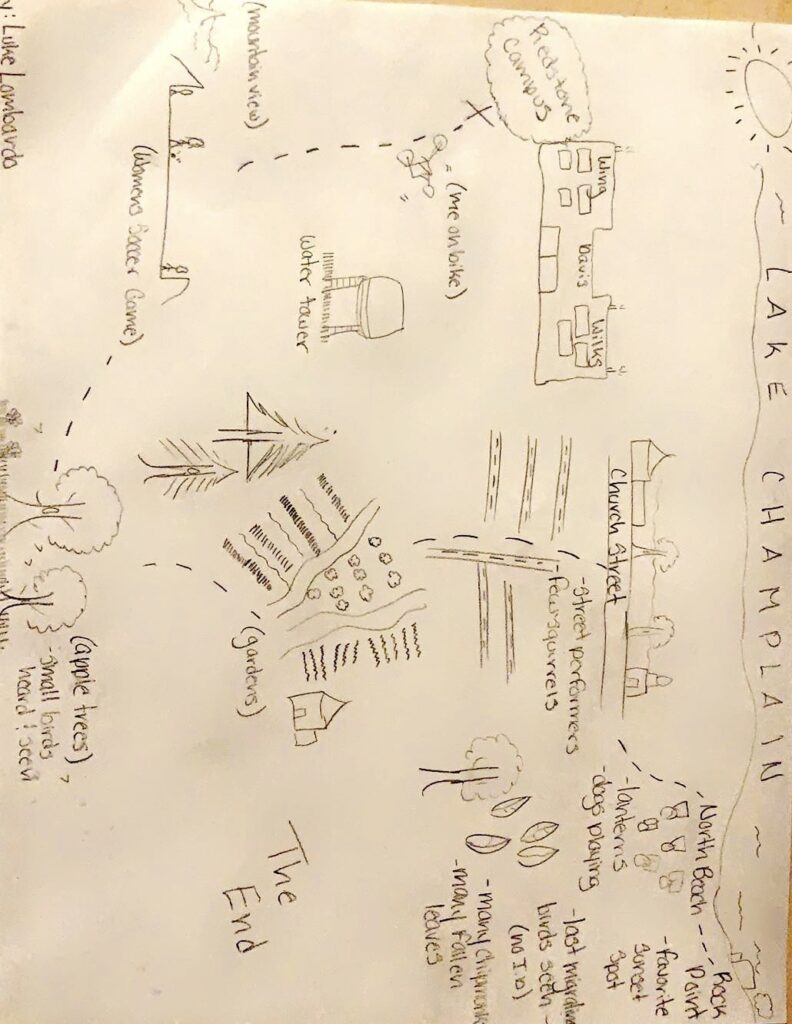 LAKE CHAMPLAIN
Redstone
Campus
Wing
Davis
Wilks
Church Street
-street performers
-few squirrels
-North Beach
-lanterns
-dogs playing
Rock
Point
-favorite
sunset
spot
-last migrating
birds seen
(no I.D)
-many chipmunk
-many fallen
leaves
=(me on bike)
Water tower
(mountain view)
(gardens)
The
End
(Womens Soccer Game)
(apple trees)
-small birds
heard & seen
y: Luke Lombardo